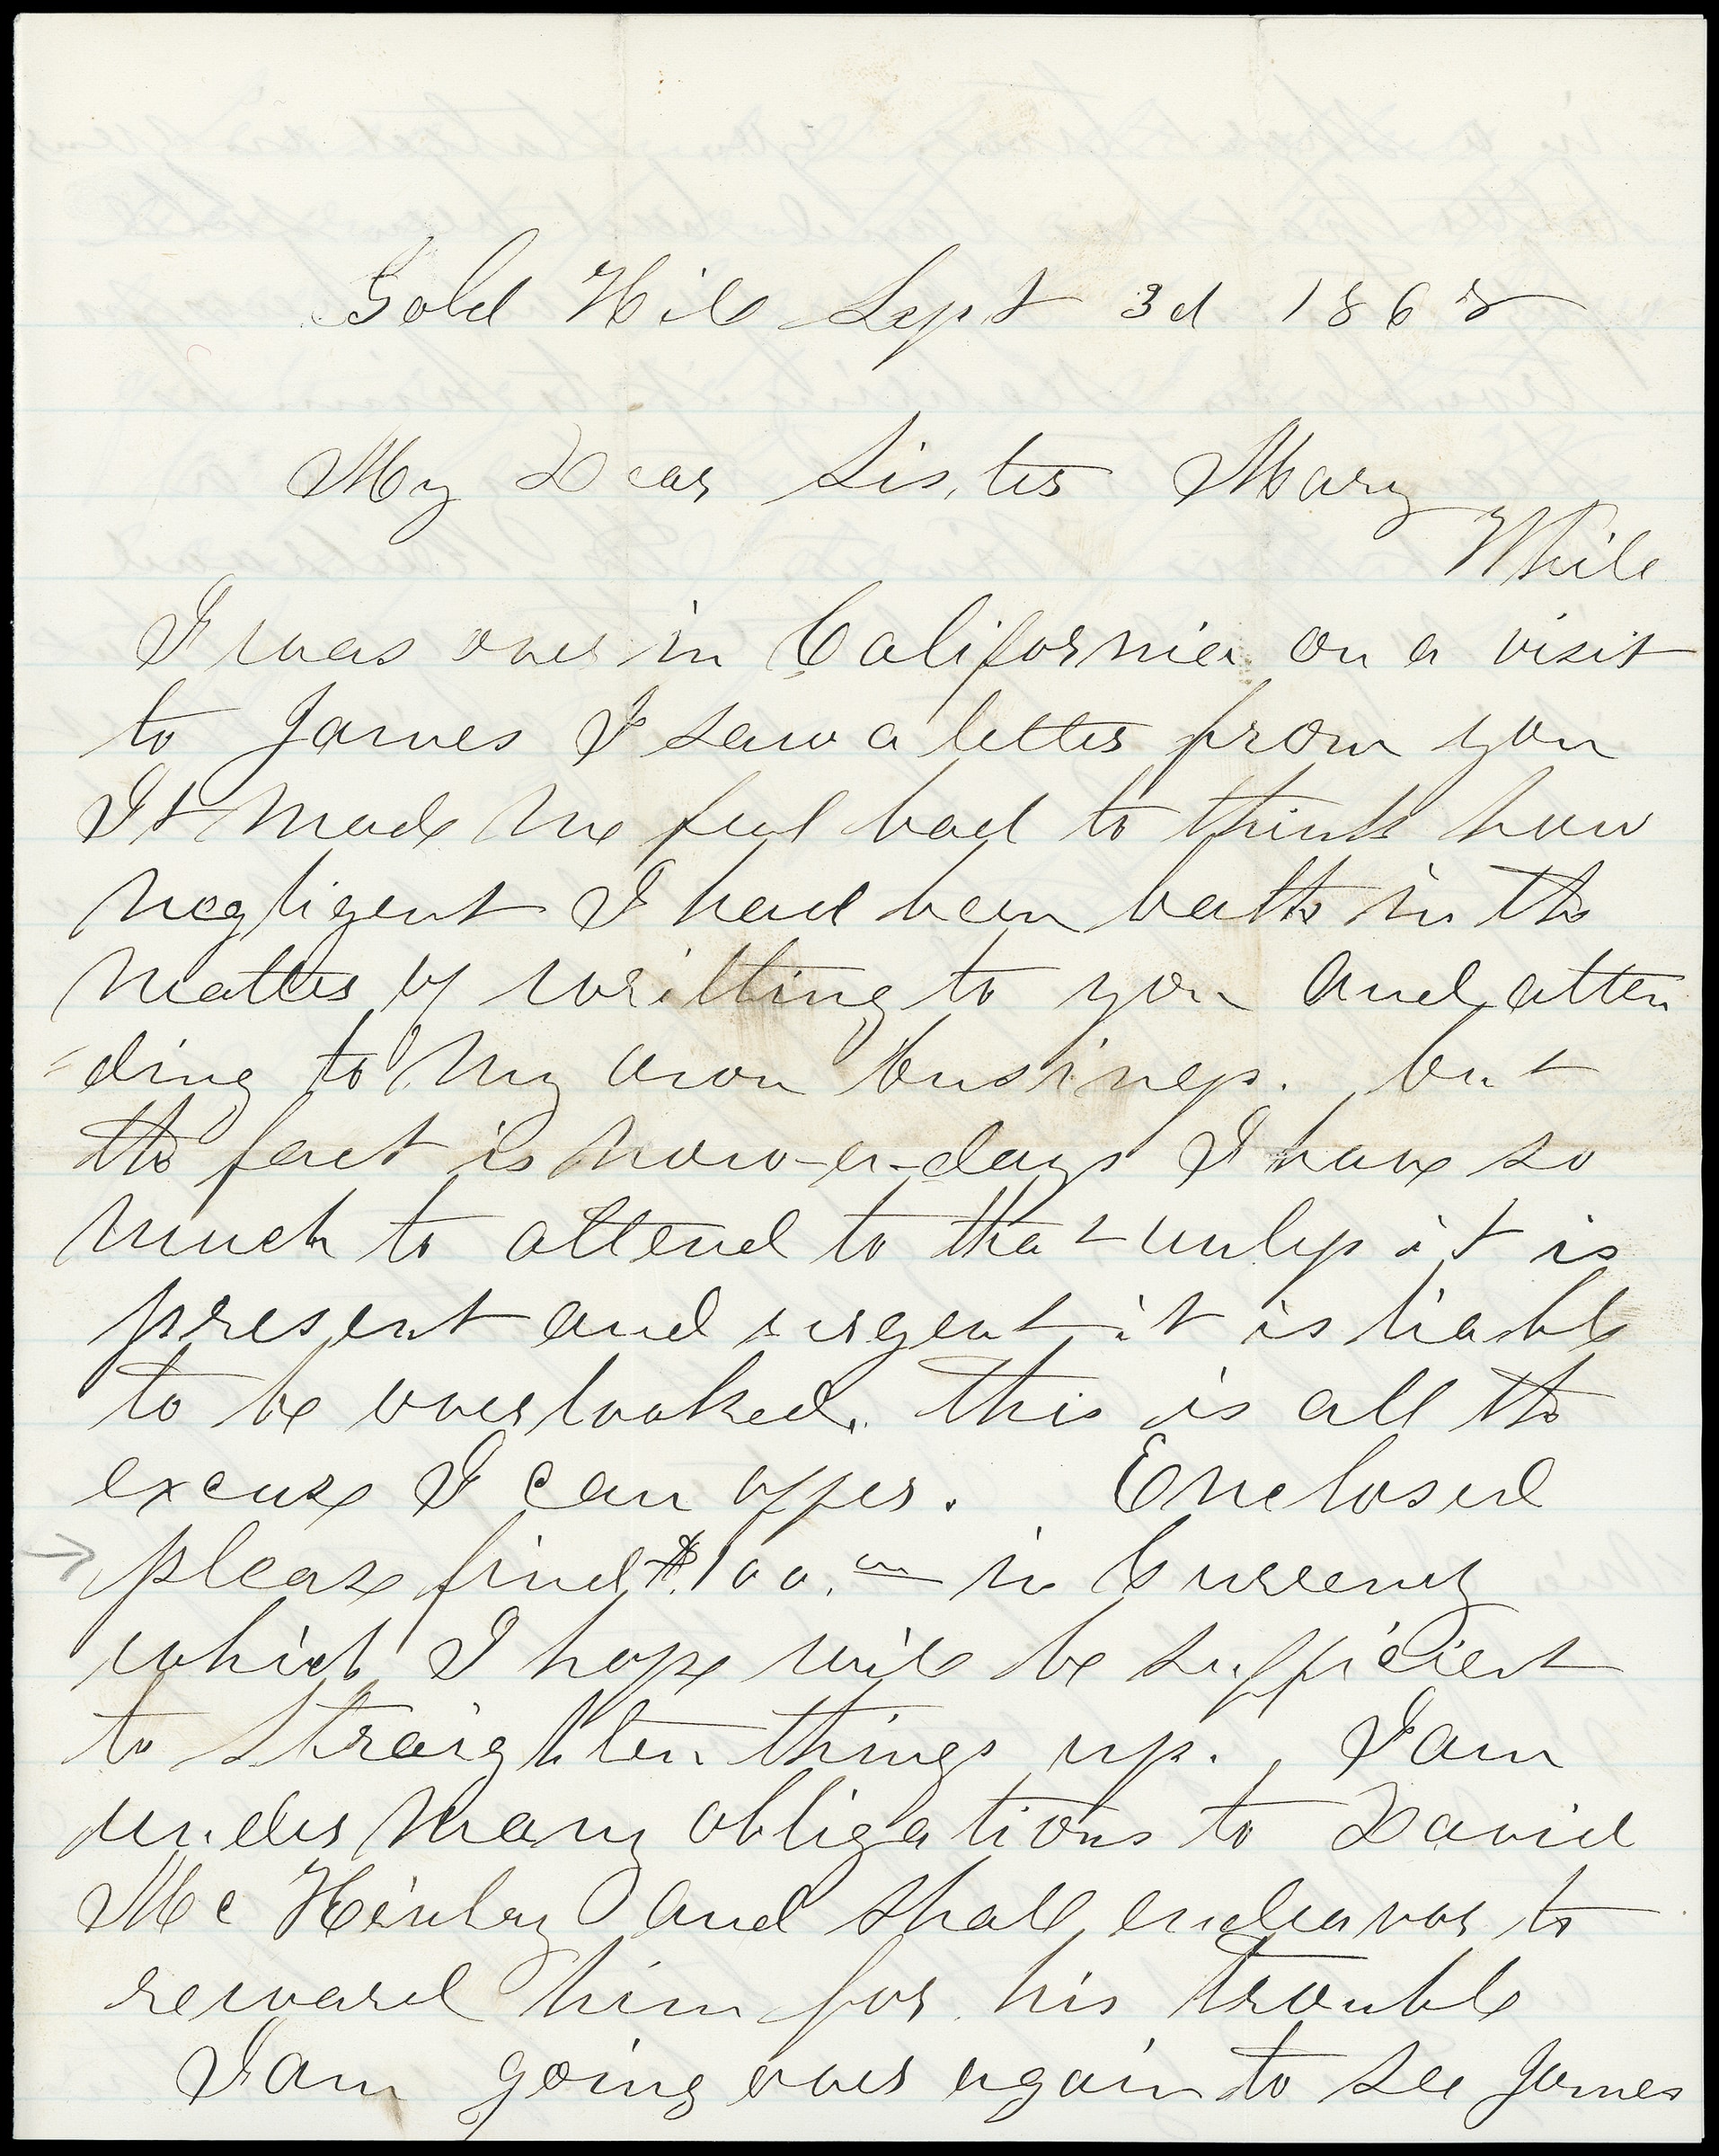 Gold Hill Sept 3d 1868
My Dear Sister Mary
While
I was over in California on a visit
to James I saw a letter from you
It made me feel bad to think how
negligent I had been both in the
matter of writting to you and atten
=ding to my own business. but
the fact is now-a-days I have so
much to attend to that unless it is
present and urgent it is liable
to be overlooked. this is all the
excuse I can offer. Enclosed
please find $100.00 in Currency
which I hope will be sufficient
to straighten things up. I am
under many obligations to David
McKinley and shall endeavor to
reward him for his trouble
I am going over again to see James